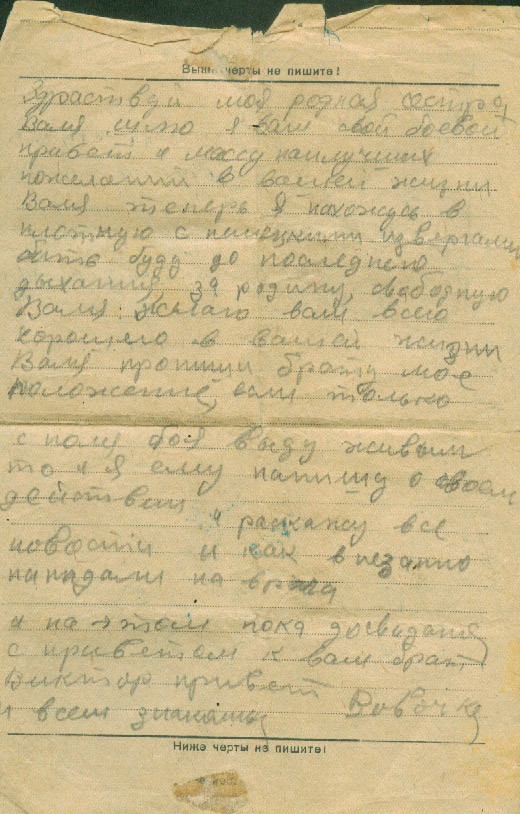 Выше черты не пишите!
Здраствуй моя родная сестра
Валя шлю я вам свой боевой
привет и массу наилучших
пожеланий в вашей жизни
Валя теперь я нахожусь в
плотную с немецкими извергами
бить буду до последнего
дыхания за родину, свободную
Валя желаю вам всего
хорошего в вашей жизни
Валя пропиши брату мое
положение, если только
с поля боя выду живым
то и я ему напишу о своем
действии
и раскажу все
новости и как внезапно
нападали на врага
и на этом пока досвиданя
с приветом к вам брат
Виктор привет Вовочке
и всем знакомы
Ниже черты не пишите!